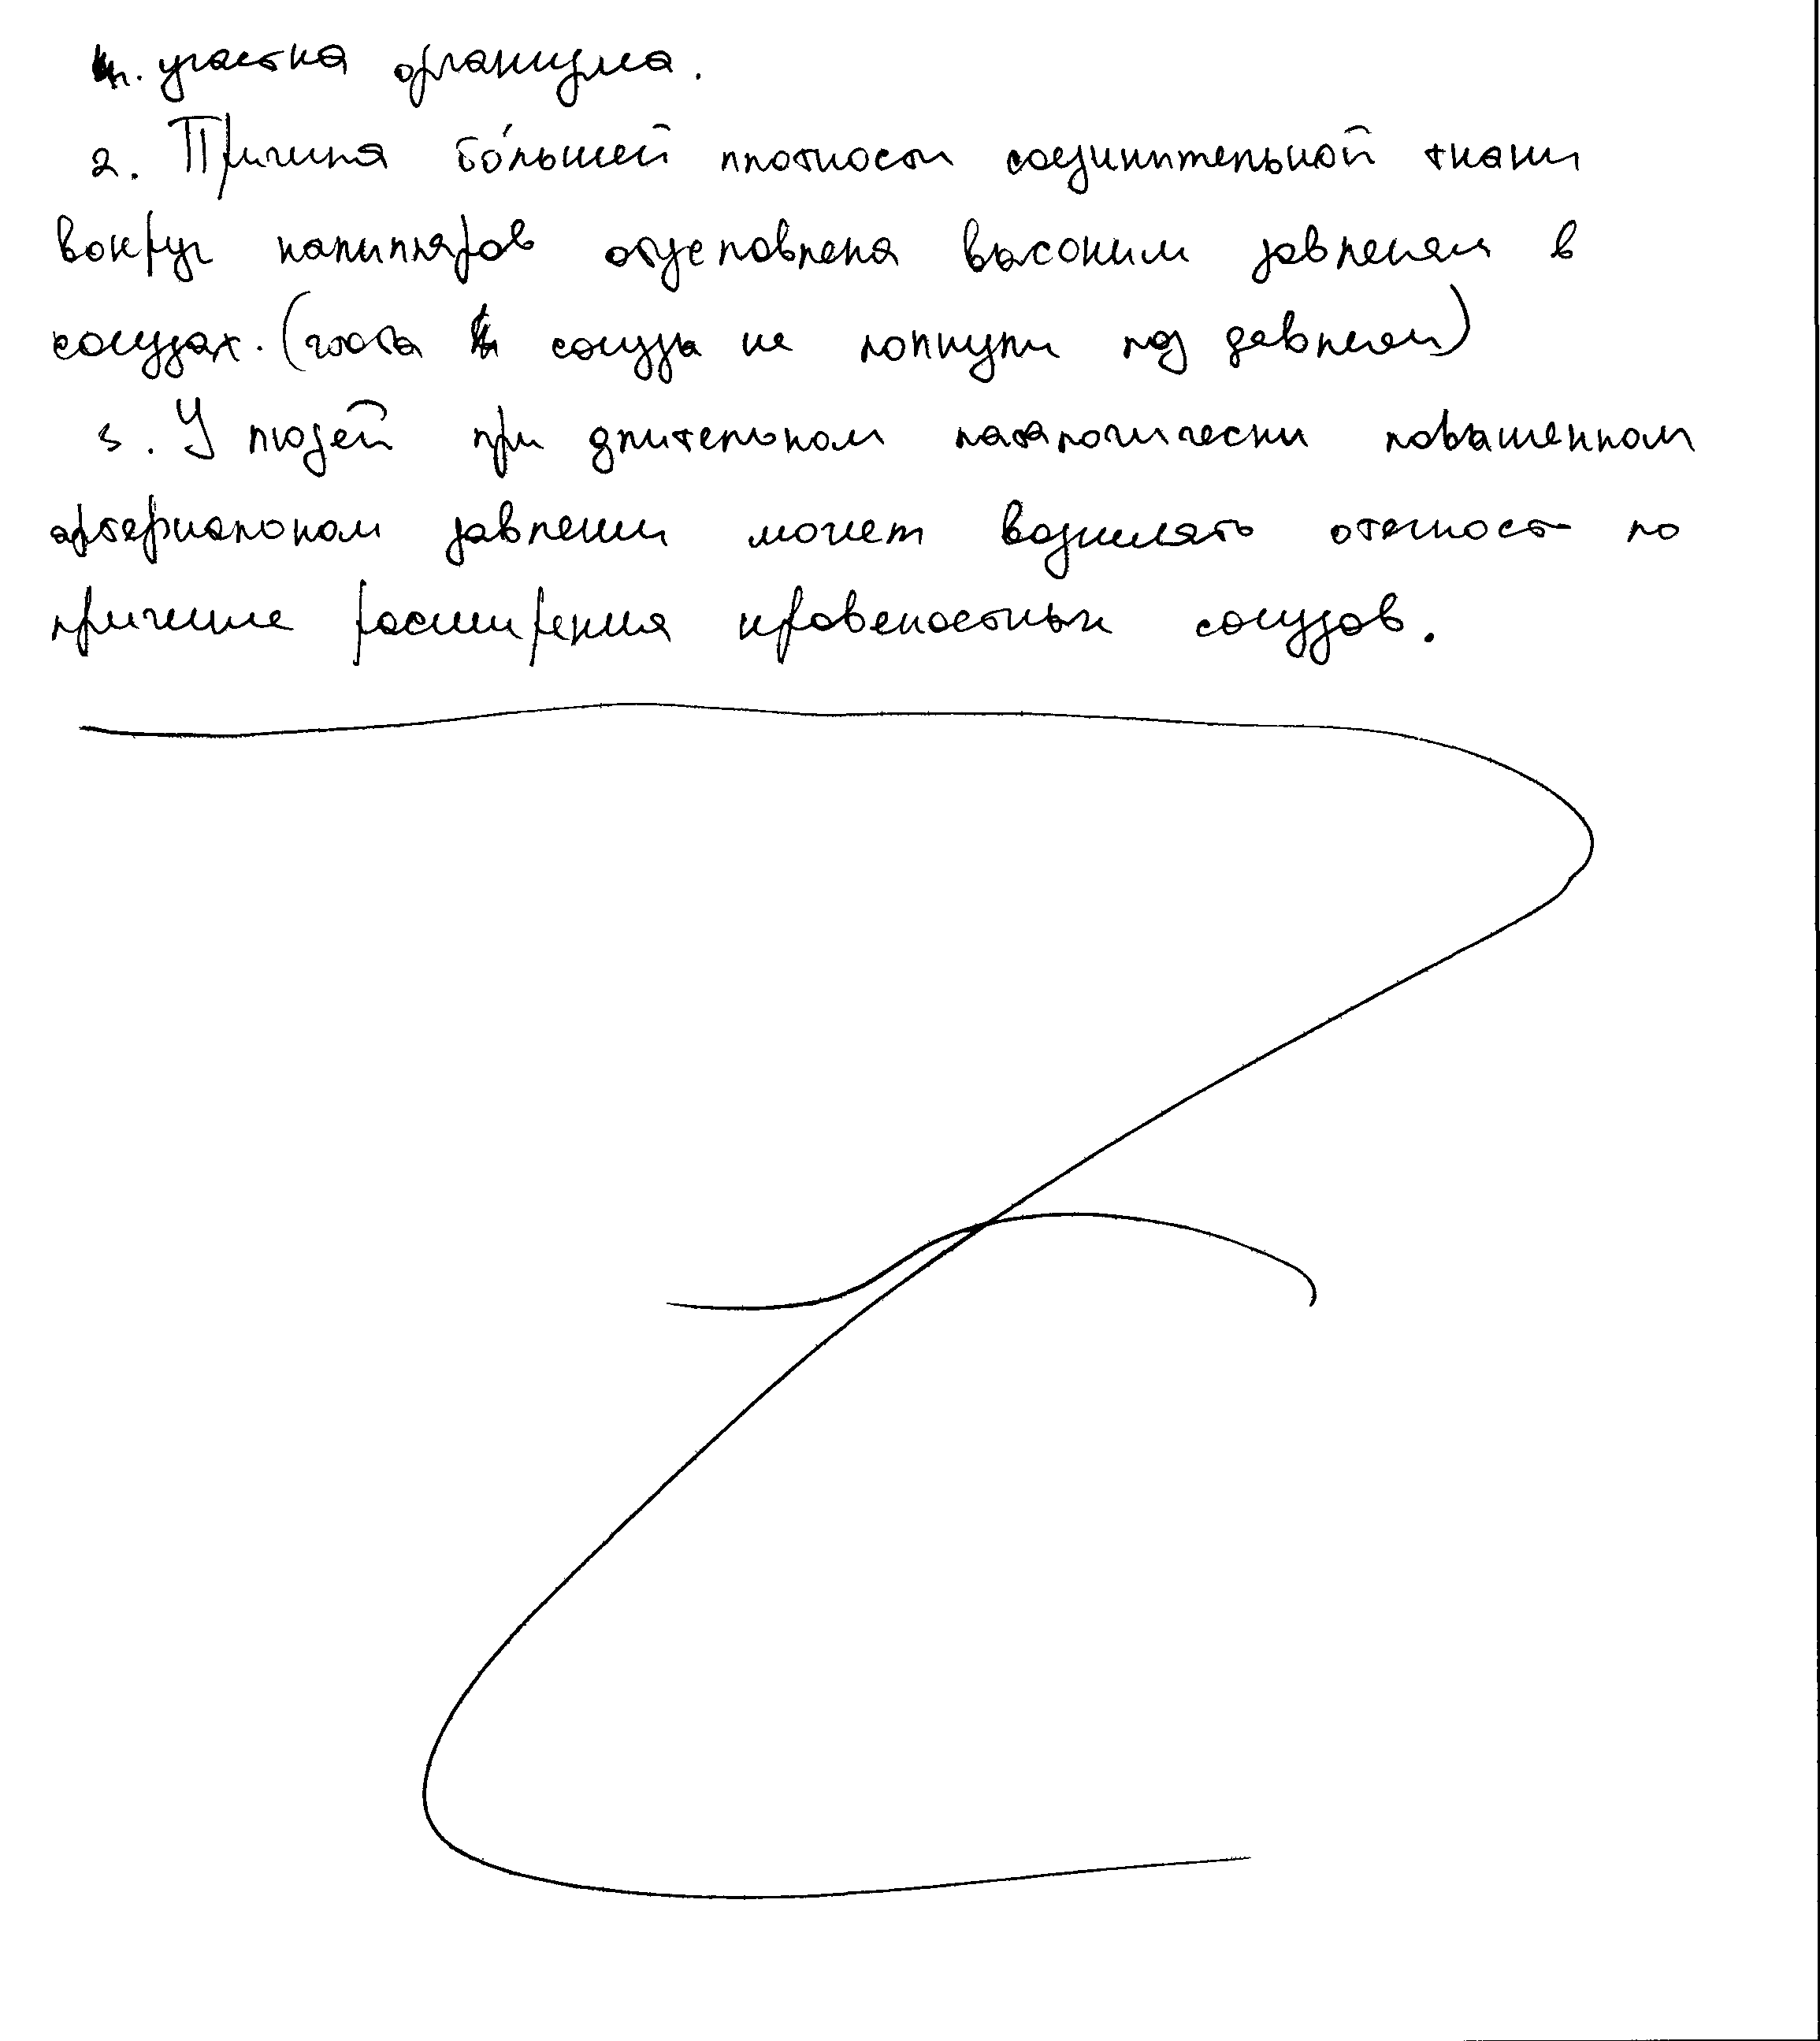 участка организма.
2. Причина бо́льшей плотности соединительной ткани
вокруг капилляров обусловлена высоким давлением в
сосудах. (чтобы сосуды не лопнули под давлением)
3. У людей при длительном патологически повышенном
артериальном давлении может возникать отечность по
причине расширения кровеностных сосудов.